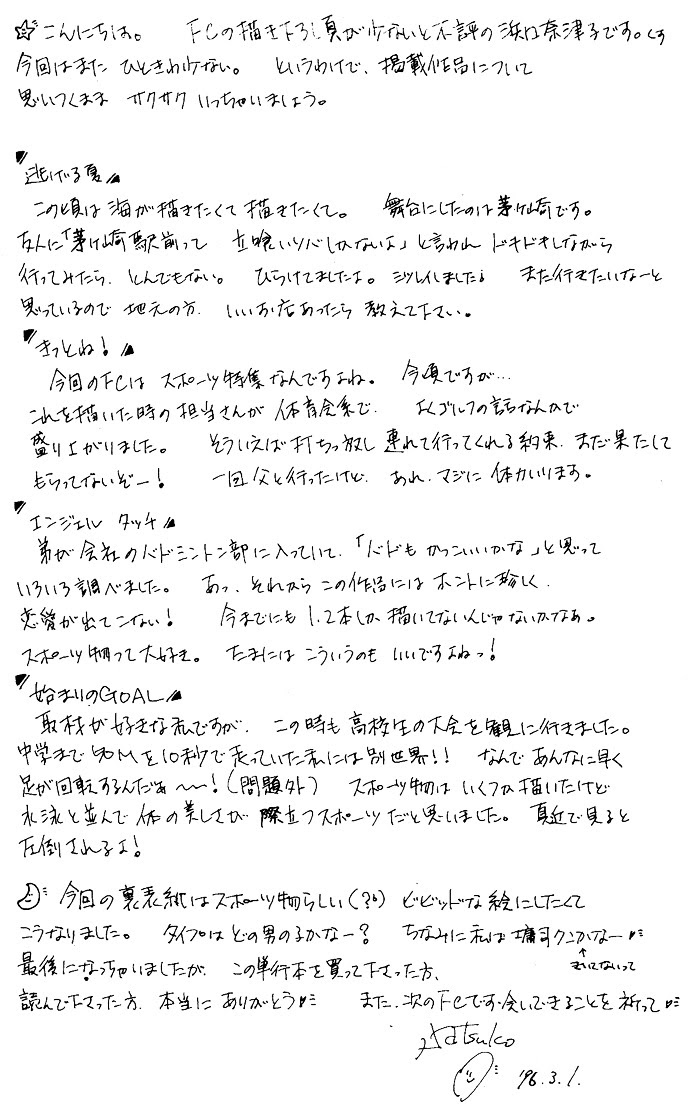 ☆こんにちは。 FCの描き下ろし頁が少ないと不評の浜口奈津子です。
今回はまた ひときわ少ない。 というわけで、掲載作品について
思いつくまま サクサク いっちゃいましょう。
"逃げる夏"
この頃は海が描きたくて描きたくて。 舞台にしたのは茅ヶ崎です。
友人に「茅ヶ崎駅前って 立喰いソバしかないよ」と言われ ドキドキしながら
行ってみたら、とんでもない。 ひらけてましたよ。シツレイしました。 また行きたいなーと
思っているので 地元の方、いいお店あったら 教えて下さい。
"きっとね!"
今回のFCは スポーツ特集なんですよね。 今頃ですが…
これを描いた時の担当さんが 体育会系で、 よくゴルフの話なんかで
盛り上がりました。 そういえば打ちっ放し 連れて行ってくれる約束、まだ果たして
もらってないぞー! 一回父と行ったけど、あれ、マジに体力いります。
"エンジェル タッチ"
弟が会社のバドミントン部に入っていて、「バドも かっこいいかな」と思って
いろいろ調べました。 あっ、それから この作品には ホントに珍しく、
恋愛が出てこない! 今までにも 1、2本しか描いてないんじゃないかなぁ。
スポーツ物って大好き。 たまには こういうのも いいですよねっ!
"始まりのGOAL"
取材が好きな私ですが、 この時も 高校生の大会を観に行きました。
中学まで 50Mを10秒で走っていた私には別世界!! なんで あんなに早く
足が回転するんだぁ〜〜!(問題外) スポーツ物は いくつか描いたけど
水泳と並んで 体の美しさが 際立つスポーツだと思いました。 真近で見ると
圧倒されるよ!
今回の裏表紙はスポーツ物らしい(?) ビビッドな絵にしたくて
こうなりました。 タイプはどの男のコかなー? ちなみに私は クンかなー♡
↑きいてないって
最後になっちゃいましたが、この単行本を買って下さった方、
読んで下さった方、本当に ありがとう♡ また、次のFCでお会いできることを祈って♡
Natsuko
'96.3.1.